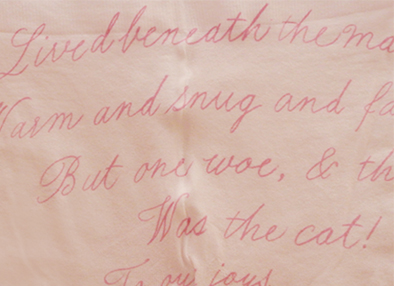 Lived beneath the ma
Warm and snug and fa
But one woe, & th
Was the cat!
To our joys